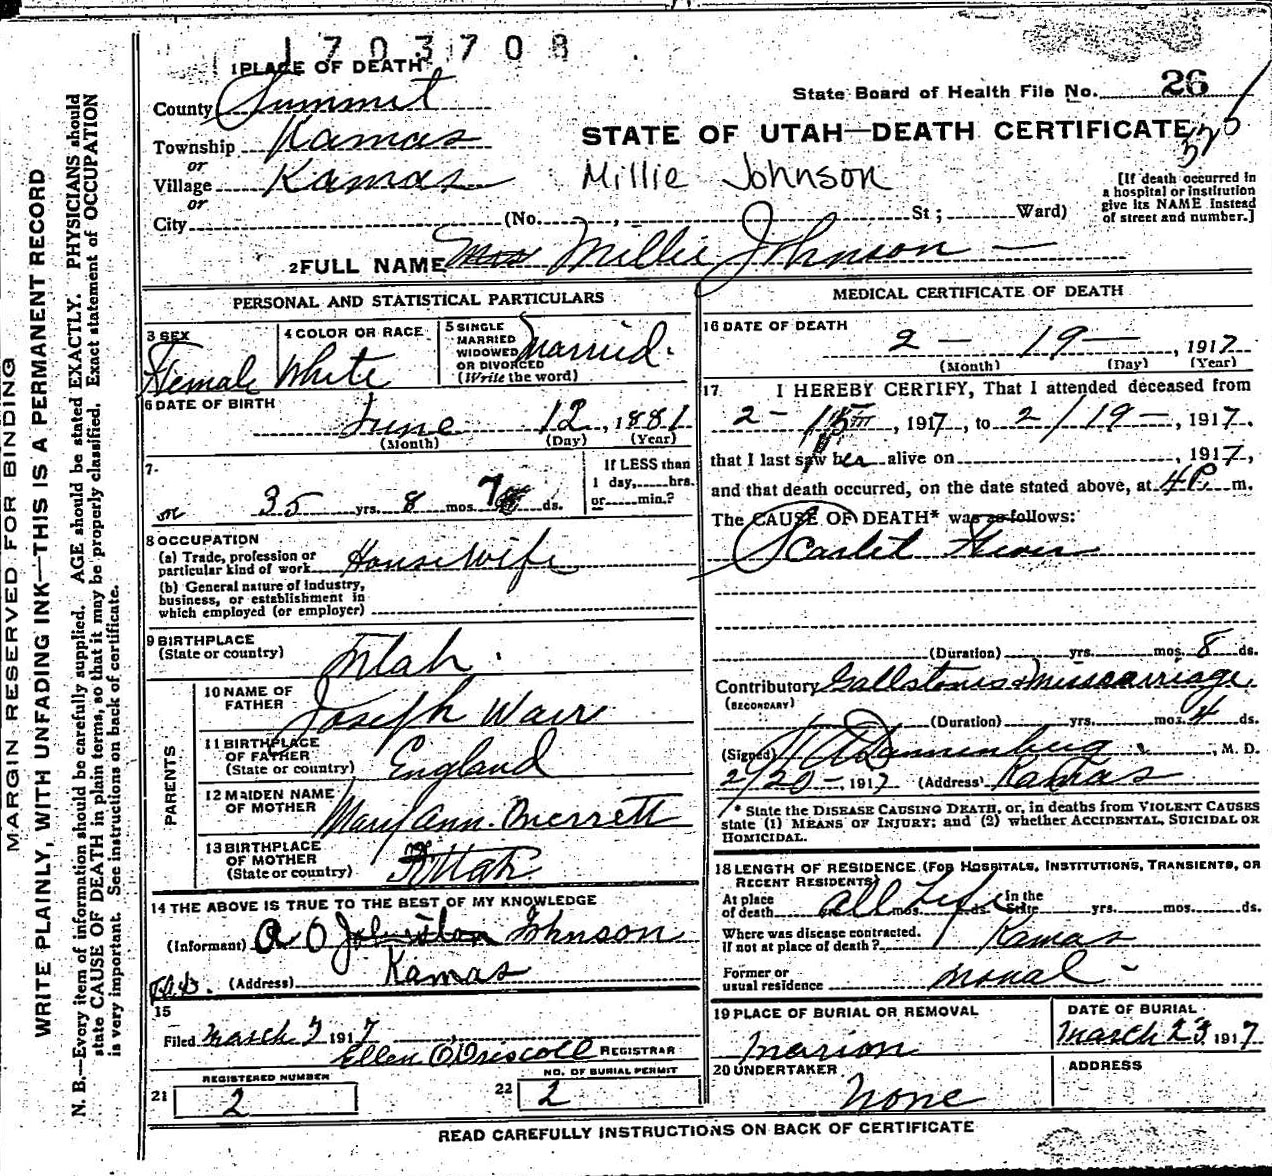 1703708
1 PLACE OF DEATH
State Board of Health File No. 26
County Summit
STATE OF UTAH—DEATH CERTIFICATE
Township Kamas
or
Village Kamas
Millie Johnson
[If death occurred in
a hospital or institution
give its NAME instead
of street and number.]
or
City (No. , St ; Ward)
2 FULL NAME Mrs Millie Johnson
PERSONAL AND STATISTICAL PARTICULARS
3 SEX
Female
4 COLOR OR RACE
White
5 SINGLE
MARRIED
WIDOWED
OR DIVORCED
(Write the word)
Married.
6 DATE OF BIRTH
June 12, 1881
(Month) (Day) (Year)
7.
35 yrs. 8 mos. 7 ds.
If LESS than
1 day, hrs.
or min.?
8 OCCUPATION
(a) Trade, profession or
particular kind of work Housewife
(b) General nature of industry,
business, or establishment in
which employed (or employer)
9 BIRTHPLACE
(State or country) Utah
PARENTS
10 NAME OF
FATHER Joseph Ware
11 BIRTHPLACE
OF FATHER
(State or country) England
12 MAIDEN NAME
OF MOTHER Mary Ann Berrett
13 BIRTHPLACE
OF MOTHER
(State or country) Utah
14 THE ABOVE IS TRUE TO THE BEST OF MY KNOWLEDGE
(Informant) A O Johnston Johnson
(Address) Kamas
15
Filed March 7 1917
Ellen O'Driscoll REGISTRAR
REGISTERED NUMBER
21 2
NO. OF BURIAL PERMIT
22 2
MEDICAL CERTIFICATE OF DEATH
16 DATE OF DEATH
2 — 19 —, 1917
(Month) (Day) (Year)
17 I HEREBY CERTIFY, That I attended deceased from
2 - 15, 1917, to 2/19 -, 1917.
that I last saw her alive on , 1917,
and that death occurred, on the date stated above, at 4 P. m.
The CAUSE OF DEATH* was as follows:
Scarlet Fever
(Duration) yrs. mos. 8 ds.
Contributory Gallstones & Misscarriage.
(SECONDARY)
(Duration) yrs. mos. 4 ds.
(Signed) Dannenberg, M. D.
2/20-, 1917 (Address) Kamas
* State the DISEASE CAUSING DEATH, or, in deaths from VIOLENT CAUSES
state (1) MEANS OF INJURY; and (2) whether ACCIDENTAL, SUICIDAL OR
HOMICIDAL.
18 LENGTH OF RESIDENCE (FOR HOSPITALS, INSTITUTIONS, TRANSIENTS, OR
RECENT RESIDENTS)
At place
of death All Life mos. ds. In the
State yrs. mos. ds.
Where was disease contracted.
if not at place of death? Kamas
Former or
usual residence
19 PLACE OF BURIAL OR REMOVAL
Marion
DATE OF BURIAL
March 23 1917
20 UNDERTAKER
None
ADDRESS
READ CAREFULLY INSTRUCTIONS ON BACK OF CERTIFICATE
MARGIN RESERVED FOR BINDING
WRITE PLAINLY, WITH UNFADING INK—THIS IS A PERMANENT RECORD
N. B.—Every item of information should be carefully supplied. AGE should be stated EXACTLY. PHYSICIANS should
state CAUSE OF DEATH in plain terms, so that it may be properly classified. Exact statement of OCCUPATION
is very important. See instructions on back of certificate.